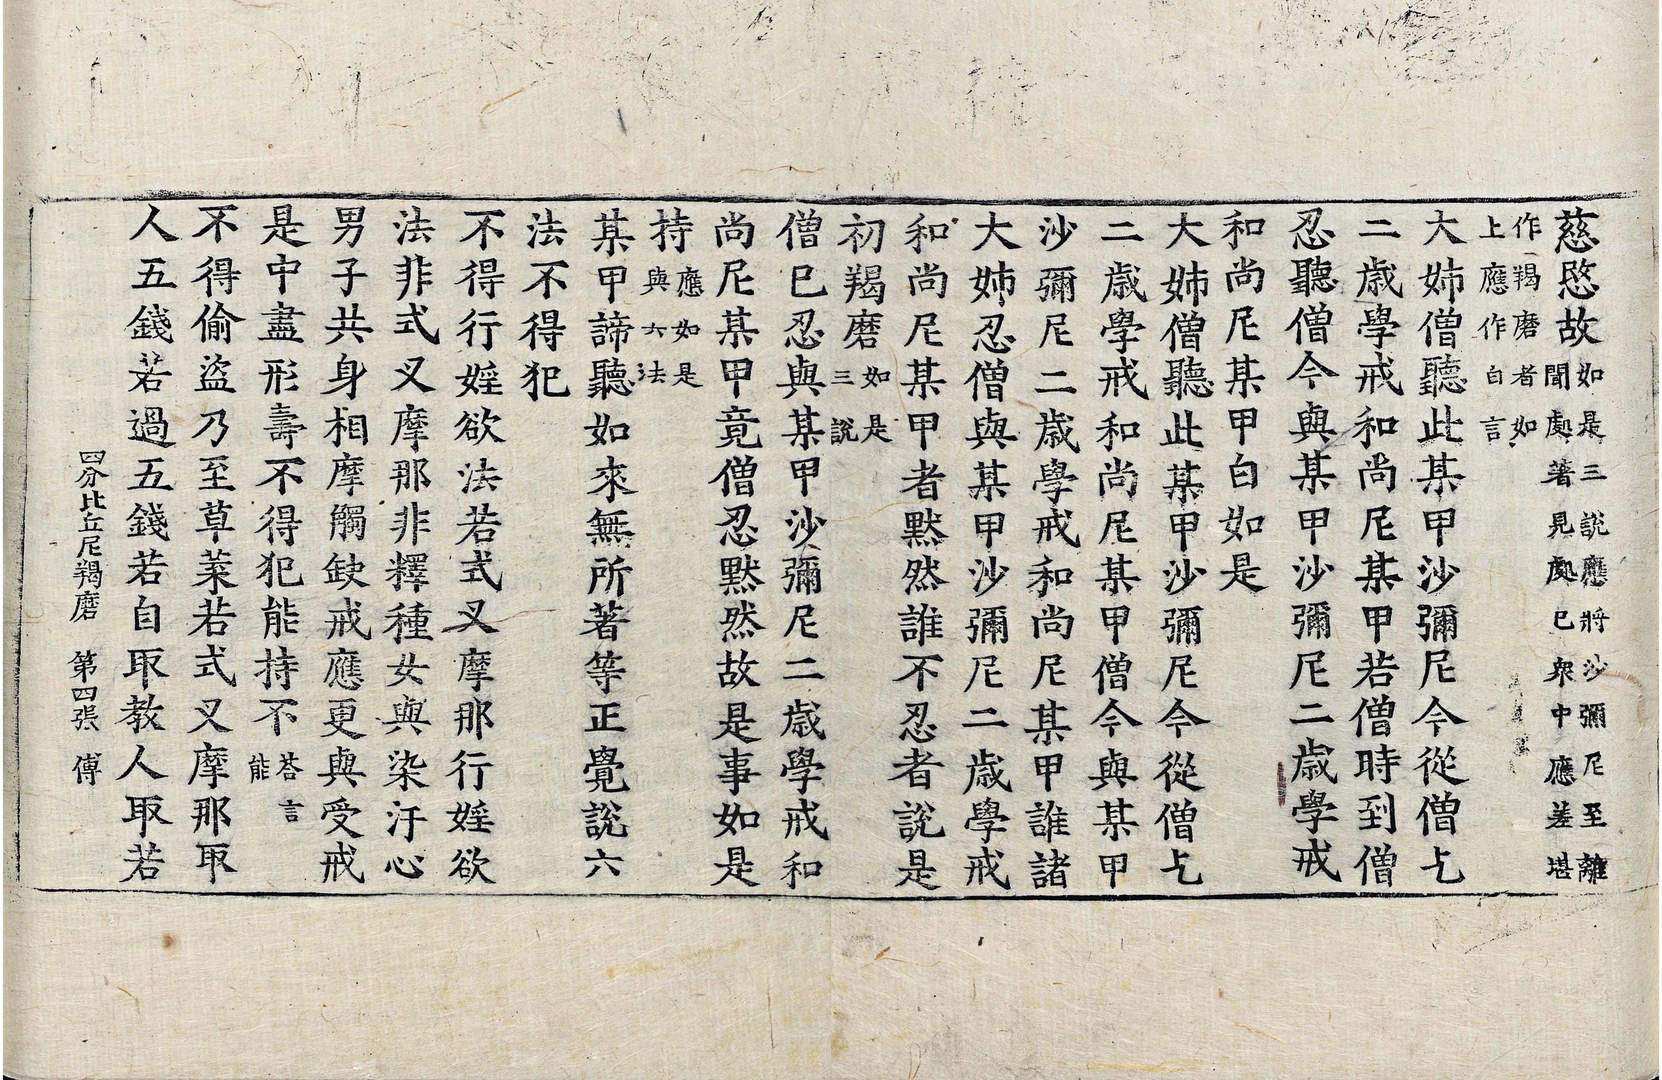 慈愍故如是三說應將沙彌尼至離聞處著見處已衆中應差堪
作羯磨者如上應作白言
大姉僧聽此某甲沙彌尼今從僧乞
二歲學戒和尚尼某甲若僧時到僧
忍聽僧今與某甲沙彌尼二歲學戒
和尚尼某甲白如是
大姉僧聽此某甲沙彌尼今從僧乞
二歲學戒和尚尼某甲僧今與某甲
沙彌尼二歲學戒和尚尼某甲誰諸
大姉忍僧與某甲沙彌尼二歲學戒
和尚尼某甲者黙然誰不忍者說是
初羯磨如是三說
僧已忍與某甲沙彌尼二歲學戒和
尚尼某甲竟僧忍黙然故是事如是
持應如是與六法
某甲諦聽如來無所著等正覺說六
法不得犯
不得行婬欲法若式叉摩那行婬欲
法非式叉摩那非釋種女與染汙心
男子共身相摩觸缺戒應更與受戒
是中盡形壽不得犯能持不荅言能
不得偷盜乃至草葉若式叉摩那取
人五錢若過五錢若自取教人取若
四分比丘尼羯磨 第四張 傅